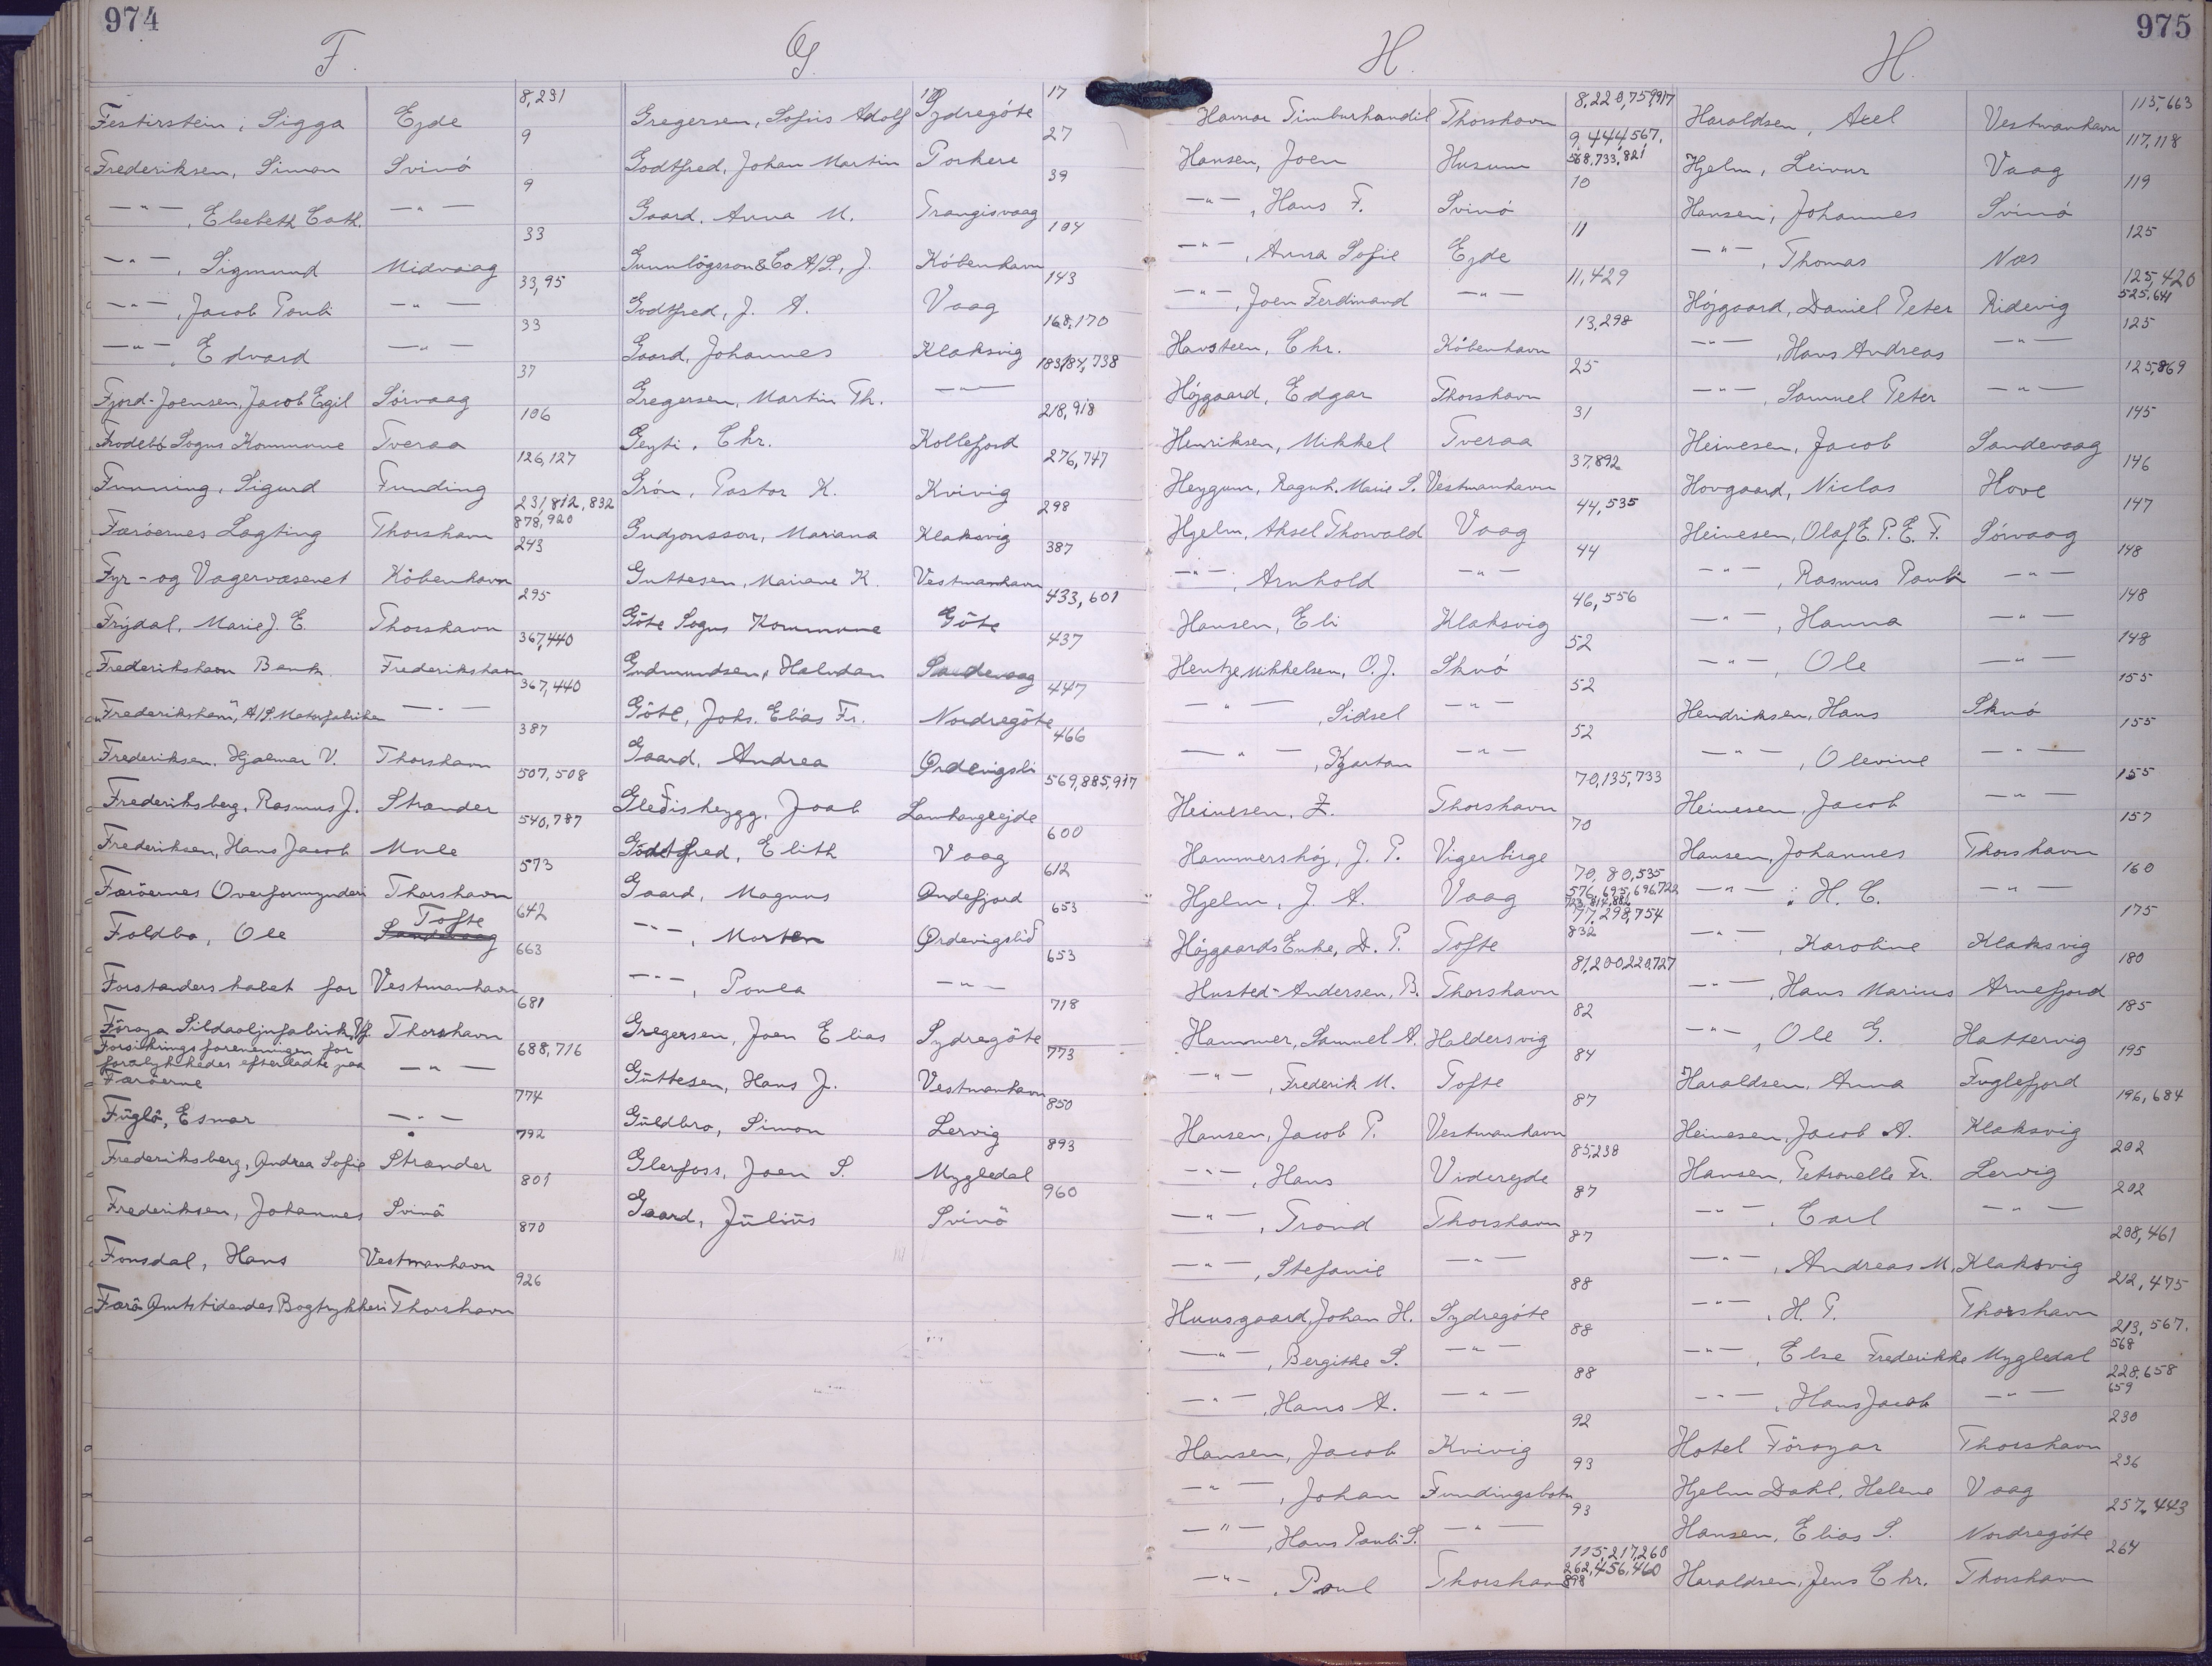 974
F.
Festirstein, Sigga Ejde 8,231
Frederiksen, Simon Svinó 9
—"—, Elsebeth Cath. —"— 9
—"—, Sigmund Midvaag 33
—"—, Jacob Pauli —"— 33,95
—"—, Edvard —"— 33
Fjord-Joensen, Jacob Egil Sörvaag 37
Frodebö Sogns Kommune Tveraa 106
Funning, Sigurd Funding 126,127
Færöernes Lagting Thorshavn 231,812,832
878,920
Fyr- og Vagervæsenet Köbenhavn 243
Frijdal, Marie J. E. Thorshavn 295
Frederikshavn Bank Frederikshavn 367,440
"Frederikshavn", A/S. Motorfabriken —"— 367,440
Frederiksen, Hjalmar V. Thorshavn 387
Frederiksberg, Rasmus J. Strænder 507,508
Frederiksen, Hans Jacob Mule 540,787
Færöernes Overformynderi Thorshavn 573
Foldbo, Ole Sandevaag Tofte 642
Forstanderskabet for Vestmanhavn 663
Föroya Sildaoljufabrik, V/f. Thorshavn 681
Forsikringsforeningen for
forulykkedes efterladte paa
Færöerne —"— 688,716
Fúglö, Esmar —"— 774
Frederiksberg, Andrea Sofie Strænder 792
Frederiksen, Johannes Svinö 801
Fonsdal, Hans Vestmanhavn 870
Færö Amtstidendes Bogtrykkeri Thorshavn 926
G.
Gregersen, Sofus Adolf Sydregóte 17
Godtfred, Johan Martin Porkere 27
Gaard, Anna M. Trangisvaag 39
Gunnlögsson & Co A/S., J. Köbenhavn 104
Godtfred, J. A. Vaag 143
Gaard, Johannes Klaksvig 168,170
Gregersen, Martin Th. —"— 183/84,738
Geyti, Chr. Kollefjord 218,918
Grón, Pastor K. Kvivig 276,747
Gudjonsson, Mariana Klaksvig 298
Guttesen, Mariane K. Vestmanhavn 387
Göte Sogns Kommune Göte 433,601
Gudmundsen, Halvdan Sandevaag 437
Göte, Johs. Elias Fr. Nordregöte 447
Gaard, Andrea Ørdevigsli 466
Gleðisheygg, Joab Lamhaugejde 569,885,917
Godtfred, Elith Vaag 600
Gaard, Magnus Øndefjord 612
—"—, Morten Ørdevigslið 653
—"—, Poula —"— 653
Gregersen, Joen Elias Sydregöte 718
Gúttesen, Hans J. Vestmanhavn 773
Gúldbro, Simon Lervig 850
Glerfoss, Joen S. Mygledal 893
Gaard, Júliús Svinö 960
975
H.
Havnar Timburhandil Thorshavn 8,220,759,917
Hansen, Joen Husum 9,444,567,
568,733,821
—"—, Hans F. Svinó 10
—"—, Anna Sofie Ejde 11
—"—, Joen Ferdinand —"— 11,429
Havsteen, Chr. Köbenhavn 13,298
Højgaard, Edgar Thorshavn 25
Henriksen, Mikkel Tveraa 31
Heygum, Ragnh. Marie S. Vestmanhavn 37,892
Hjelm, Aksel Thorvald Vaag 44,535
—"—, Arnhold —"— 44
Hansen, Eli Klaksvig 46,556
Hentze Mikkelsen, O. J. Skuó 52
—"—, Sidsel —"— 52
—"—, Kjartan —"— 52
Heinesen, Z. Thorshavn 70,135,733
Hammershój, J. P. Vigerbirge 70
Hjelm, J. A. Vaag 70, 80,535
576,695,696,722
Højgaards Enke, D. P. Tofte 77,298,754
832
Husted-Andersen, B. Thorshavn 81,200,220,727
Hammer, Samuel A. Haldersvig 82
—"—, Frederik M. Tofte 84
Hansen, Jacob P. Vestmanhavn 87
—"—, Hans Videreyde 85,238
—"—, Trond Thorshavn 87
—"—, Stefanie —"— 87
Huusgaard, Johan H. Sydregóte 88
—"—, Bergithe S. —"— 88
—"—, Hans A. —"— 88
Hansen, Jacob Kvivig 92
—"—, Johan Fundingsbotn 93
—"—, Hans Pauli S. —"— 93
—"—, Poul Thorshavn 115,217,260
262,456,460
898
H.
Haraldsen, Axel Vestmanhavn 115,663
Hjelm, Leivur Vaag 117,118
Hansen, Johannes Svinó 119
—"—, Thomas Næs 125
Højgaard, Daniel Peter Ridevig 125,420
525,641
—"—, Hans Andreas —"— 125
—"—, Samuel Peter —"— 125,869
Heinesen, Jacob Sandevaag 145
Hovgaard, Niclas Hove 146
Heinesen, Olaf E. P. E. F. Sörvaag 147
—"—, Rasmus Pauli —"— 148
—"—, Hanna —"— 148
—"—, Ole —"— 148
Hendriksen, Hans Skuó 155
—"—, Olevine —"— 155
Heinesen, Jacob —"— 155
Hansen, Johannes Thorshavn 157
—"—, H. C. —"— 160
—"—, Karoline Klaksvig 175
—"—, Hans Marius Arnefjord 180
—"—, Ole G. Hattervig 185
Haraldsen, Anna Fuglefjord 195
Heinesen, Jacob A. Klaksvig 196,684
Hansen, Petronelle Fr. Lervig 202
—"—, Carl —"— 202
—"—, Andreas M. Klaksvig 208,461
—"—, H. P. Thorshavn 212,475
—"—, Else Frederikke Mygledal 213,567,
568
—"—, Hans Jacob —"— 228,658
659
Hotel Föroyar Thorshavn 230
Hjelm Dahl, Helene Vaag 236
Hansen, Elias S. Nordregóte 257,443
Haraldsen, Jens Chr. Thorshavn 264